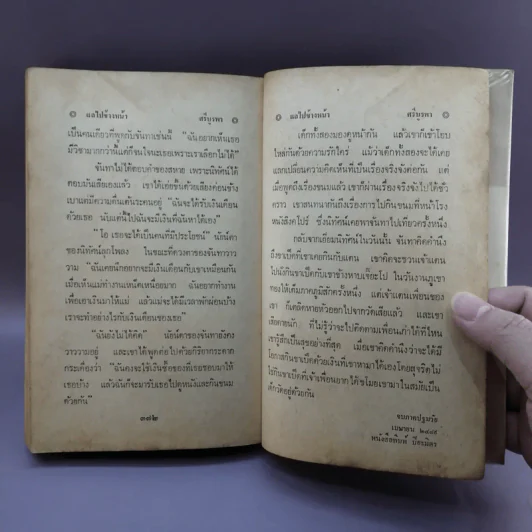 แลไปข้างหน้า ศรีบูรพา
เป็นคนเดียวที่พูดกับจันทาเช่นนั้น "ฉันอยากเห็นเธอ
มีวิชามากกว่านี้แต่ก็จนใจนะเธอเพราะเราเลือกไม่ได้"
จันทาไม่ได้ตอบคำของสหาย เพราะนิทัศน์ได้
ตอบมันเสียเองแล้ว เขาได้เอยขึ้นด้วยเสียงค่อนข้าง
เบาแต่มีความตื่นเต้นระคนอยู่ "ฉันจะได้รับเงินเดือน
ด้วยเธอ นับแต่นี้ไปฉันจะมีเงินที่ฉันหาได้เอง"
"โอ เธอจะได้เป็นคนที่มีประโยชน์" นัยน์ตา
ของนิทัศน์ลุกโพลง ในขณะที่ดวงตาของจันทาวาว
วาม ฉันเคยนึกอยากจะมีเงินเดือนกับเขาเหมือนกัน
เมื่อเห็นแม่ทำงานเหน็ดเหนื่อย ฉันอยากทำงาน
เพื่อเอาเงินมาให้แม่ แล้วแม่จะได้มีเวลาพักผ่อนบ้าง
เราจะทำอย่างไรกับเงินเดือนของเธอ"
"ฉันยังไม่ได้คิด" นัยน์ตาของจันทายังคง
วาววามอยู่ และเขาได้พูดต่อไปด้วยกิริยากระดาก
กระเดื่องว่า "ฉันคงจะใช้เงินซื้อของที่เธอชอบมาให้
เธอบ้าง แล้วฉันก็จะมารับเธอไปดูหนังและกินขนม
ด้วยกัน"
๓๗๒
แลไปข้างหน้า ศรีบูรพา
เด็กทั้งสองมองดูหน้ากัน แล้วเขาก็เข้าโอบ
ไหล่กันด้วยความรักใคร่ แม้ว่าเด็กทั้งสองจะได้เคย
แลกเปลี่ยนความคิดเห็นที่เป็นเรื่องจริงจังต่อกัน แต่
เมื่อพูดถึงเรื่องขนมแล้ว เขาก็ผ่านเรื่องจริงจังไปได้ชั่ว
คราว เขาสนทนากันถึงเรื่องการไปกินขนมที่หน้าโรง
หนังสิงคโปร์ ซึ่งนิทัศน์เคยพาจันทาไปเที่ยวครั้งหนึ่ง
กลับจากเยี่ยมนิทัศน์ในวันนั้น จันทาคิดคำนึง
ถึงขาเป็ดที่เขาเคยกินกับแดน เขาคิดจะชวนเจ้าแดน
ไปนั่งกินขาเป็ดกับเขาข้างหาบเจ๊กอะไป ในวันงานภูเขา
ทองให้เต็มภาคภูมิสักครั้งหนึ่ง แต่เจ้าแดนเพื่อนของ
เขา ก็เตลิดหายตัวออกไปจากวัดเสียแล้ว และเขา
เสียดายนัก ที่ไม่รู้ว่าจะไปติดตามเพื่อนเก่าได้ที่ไหน
เขารู้สึกเป็นสุขอย่างที่สุด เมื่อเขาคิดคำนึงว่าจะได้มี
โอกาสกินขาเป็ดด้วยเงินที่เขาหามาได้เองโดยสุจริตไม่
ใช่กินขาเป็ดที่เจ้าเพื่อนยากได้ขโมยเขามาในสมัยที่เป็น
เด็กวัดอยู่ด้วยกัน
จบภาคปฐมวัย
เมษายน ๒๔๙๘
หนังสือพิมพ์ ปิยะมิตร